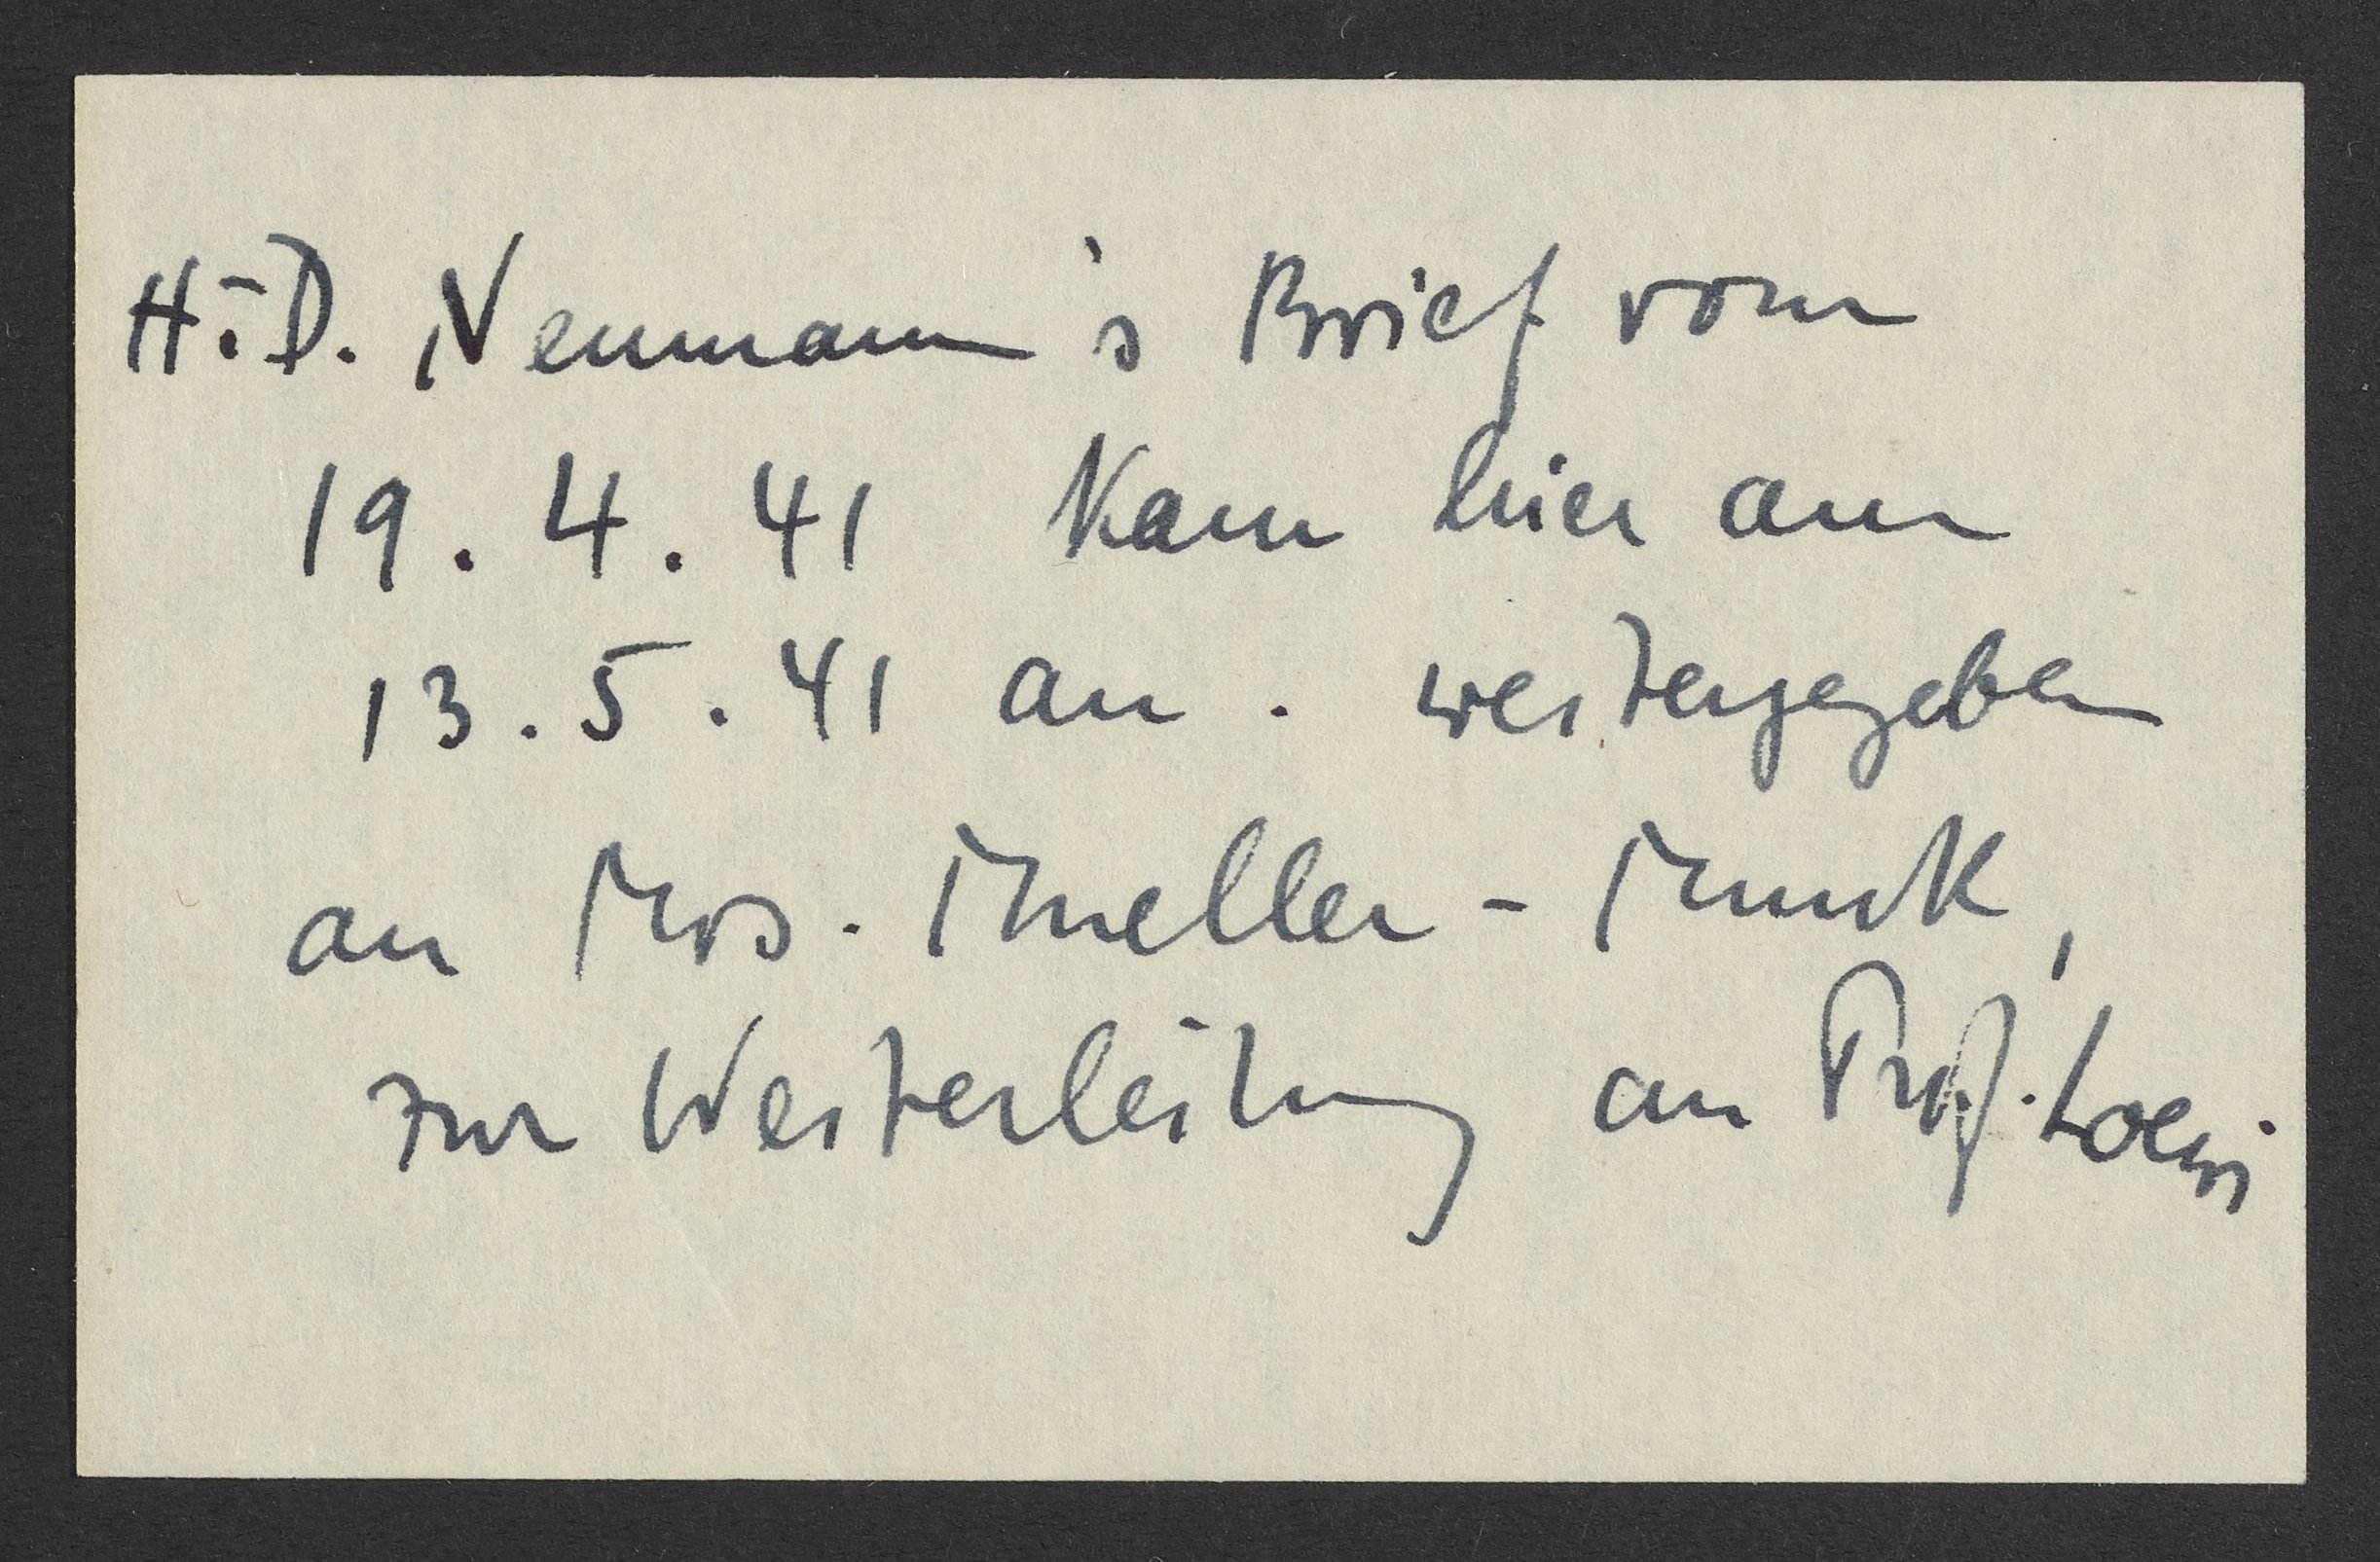 H.D. Neumann's Brief vom
19.4.41 kam hier am
13.5.41 an. weitergegeben
an Mrs. Mueller-Munk,
zur Weiterleitung an Prof. Loewi